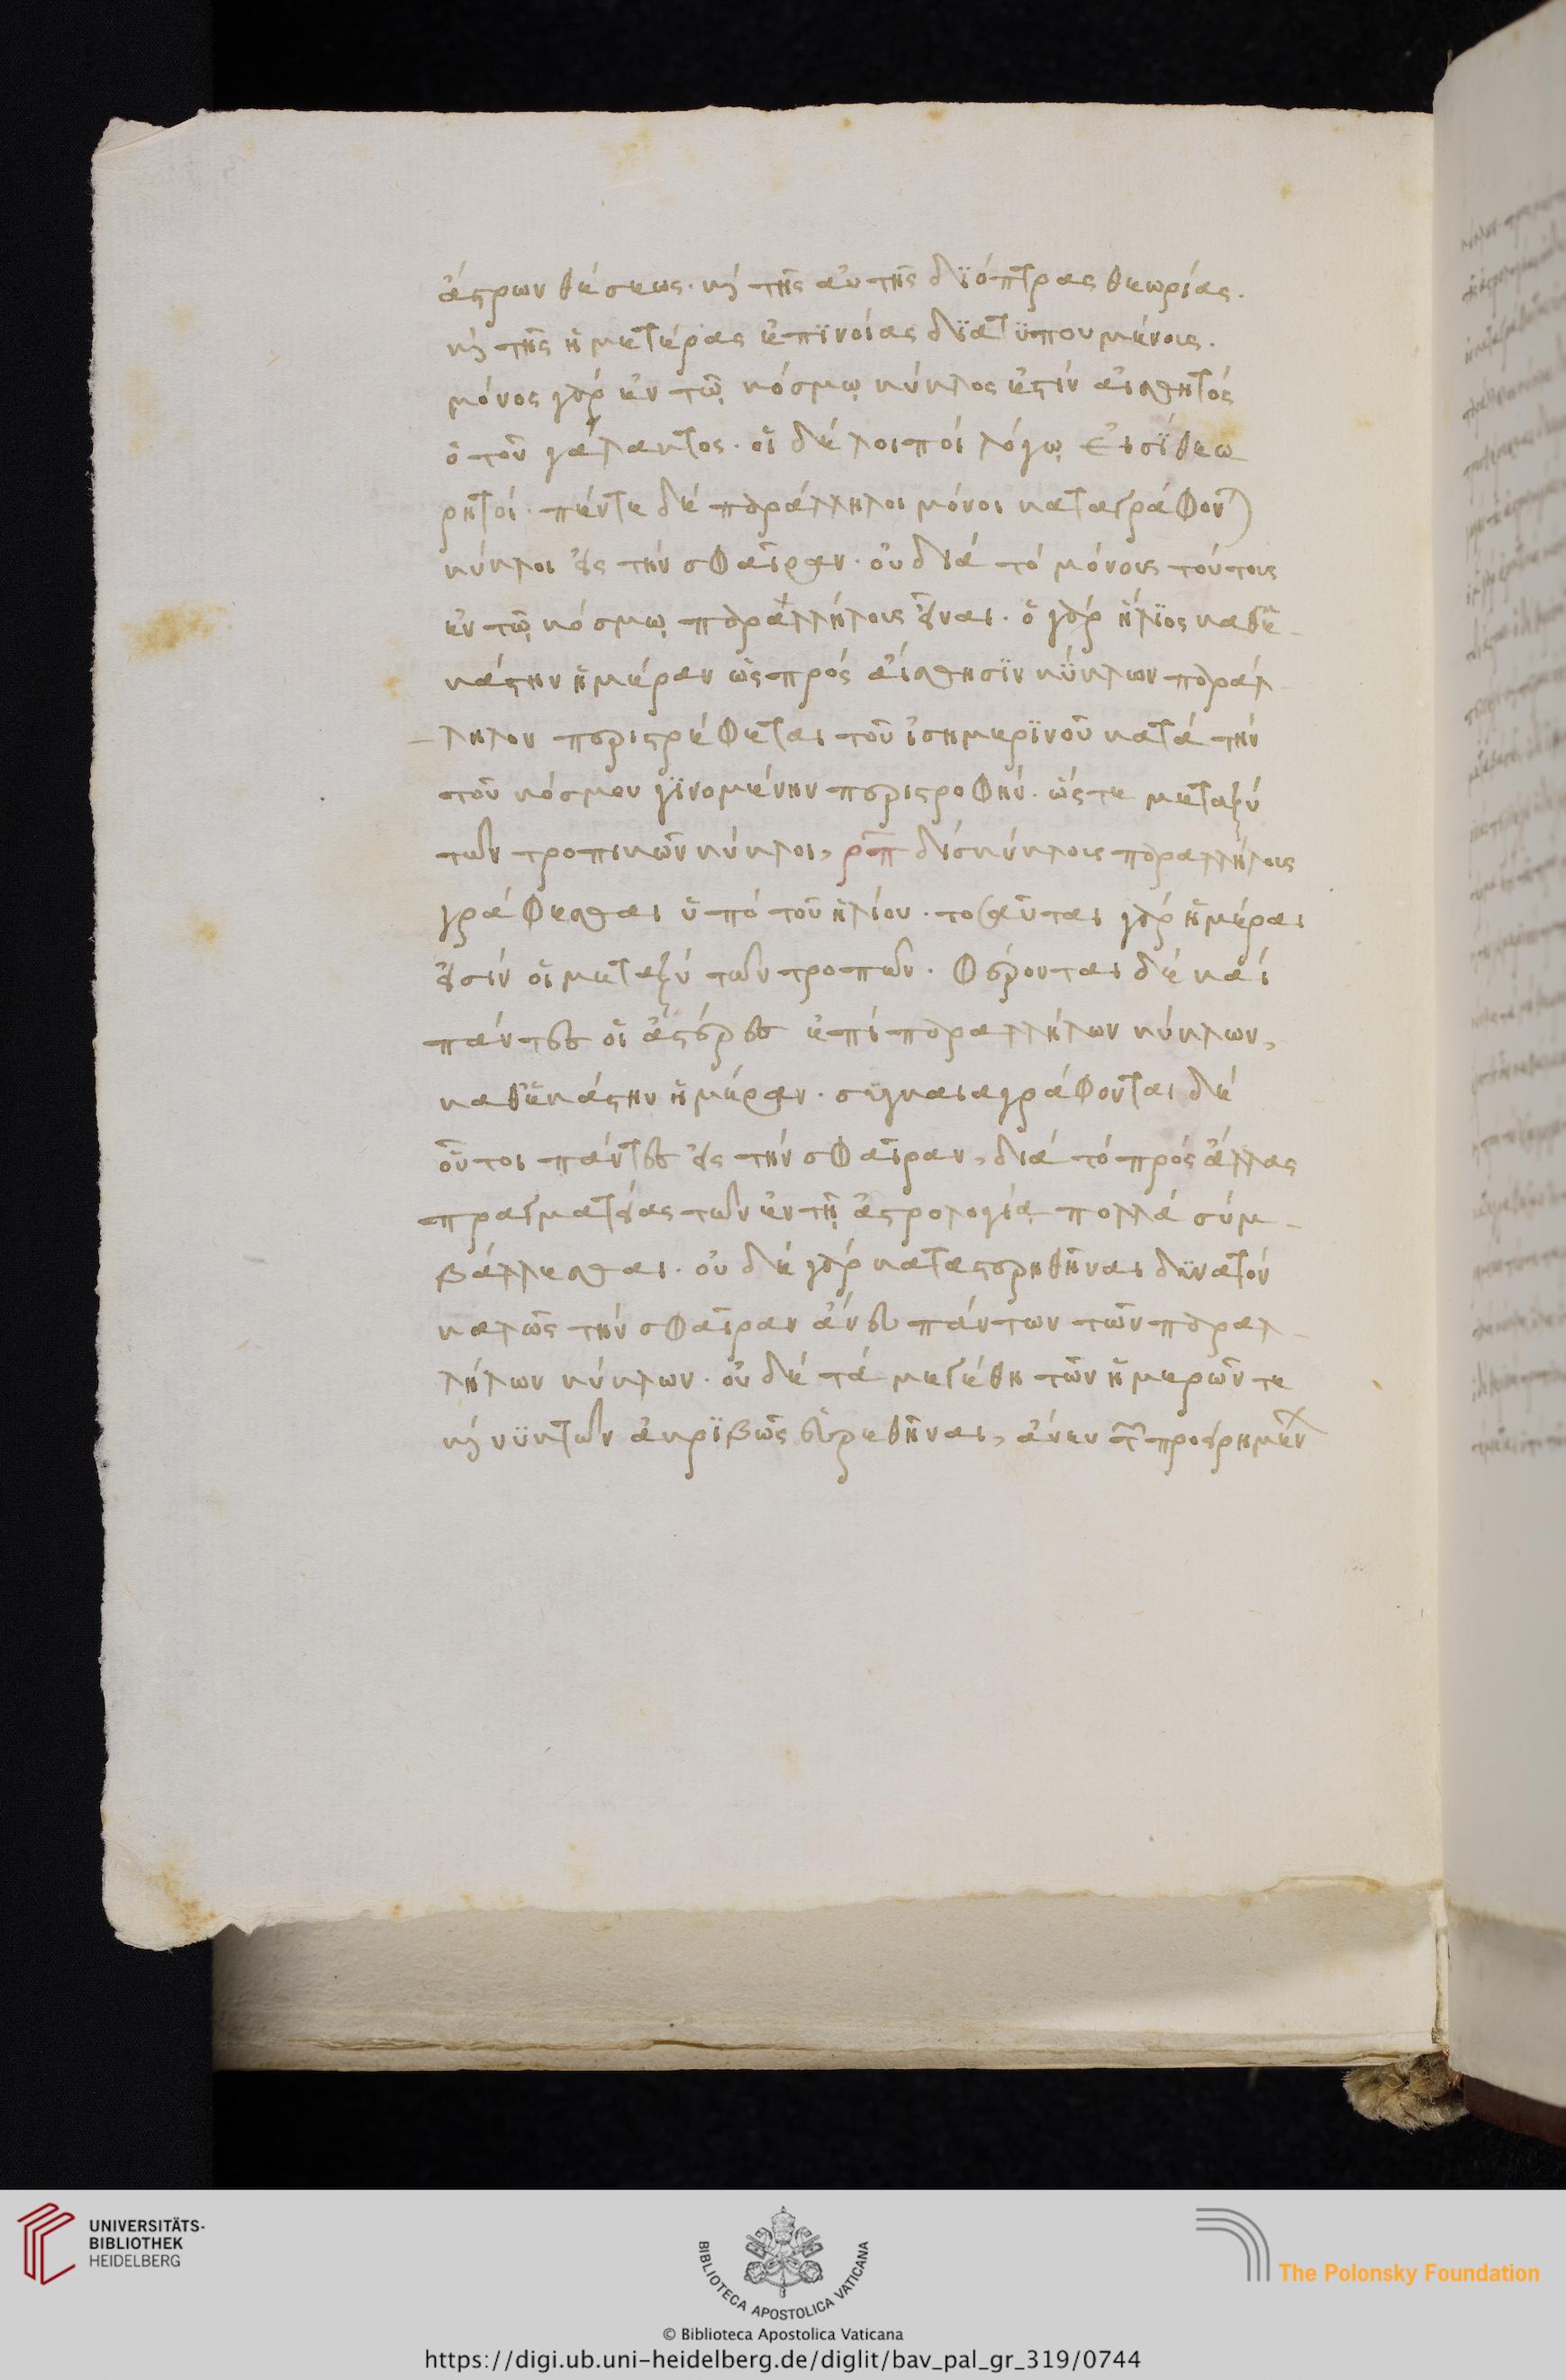 ἄστρων θέσεως· καὶ τῆς αὐτῆς διόπτρας θεωρίας·
καὶ τῆς ἡμετέρας ἐπϊνοίας δϊατϋπουμένοις.
μόνος γὰρ ἐν τῷ κόσμῳ κύκλος ἐστὶν αἰσθητὸς
ὁ τοῦ γάλακτος· οἱ δὲ λοιποὶ λόγῳ εἰσὶ θεω
ρητοί· πέντε δὲ παράλληλοι μόνοι καταγράφον
κύκλοι εἰς τὴν σφαῖραν· οὐ διὰ τὸ μόνους τούτους
ἐν τῷ κόσμῳ παραλλήλους εἶναι· ὁ γὰρ ἥλϊος καθ' ἑ-
κάστην ἡμέραν ὡς πρὸς αἴσθησϊν κύκλων παράλ
-ληλον περιστρέφεται τοῦ ἰσημερϊνοῦ κατὰ τὴν
τοῦ κόσμου γϊνομένην περιστροφήν· ὥστε μεταξὺ
τῶν τροπικῶν κύκλοι, ρπ δὶς κύκλους παραλλήλους
γράφεσθαι ὑπὸ τοῦ ἡλίου· τοσαῦται γὰρ ἡμέραι
εἰσὶν οἱ μεταξὺ τῶν τροπῶν· φέρονται δὲ καὶ
πάντες οἱ ἀστέρες ἐπὶ παραλλήλων κύκλων,
καθ' ἑκάστην ἡμέραν· συγκαταγράφονται δὲ
οὗτοι πάντες εἰς τὴν σφαῖραν, διὰ τὸ πρὸς ἄλλας
πραγματείας τῶν ἐν τῇ ἀστρολογίᾳ πολλὰ σύμ-
βάλλεσθαι· οὐδὲ γὰρ καταστερηθῆναι δυνατὸν
καλῶς τὴν σφαῖραν ἄνευ πάντων τῶν παραλ-
λήλων κύκλων· οὐδὲ τὰ μεγέθη τῶν ἡμερῶν τε
καὶ νϋκτῶν ἀκρϊβῶς εὑρεθῆναι, ἄνευ τῶν προειρημέν
UNIVERSITÄTS-
BIBLIOTHEK
HEIDELBERG
BIBLIOTECA APOSTOLICA VATICANA
The Polonsky Foundation
© Biblioteca Apostolica Vaticana
https://digi.ub.uni-heidelberg.de/diglit/bav_pal_gr_319/0744